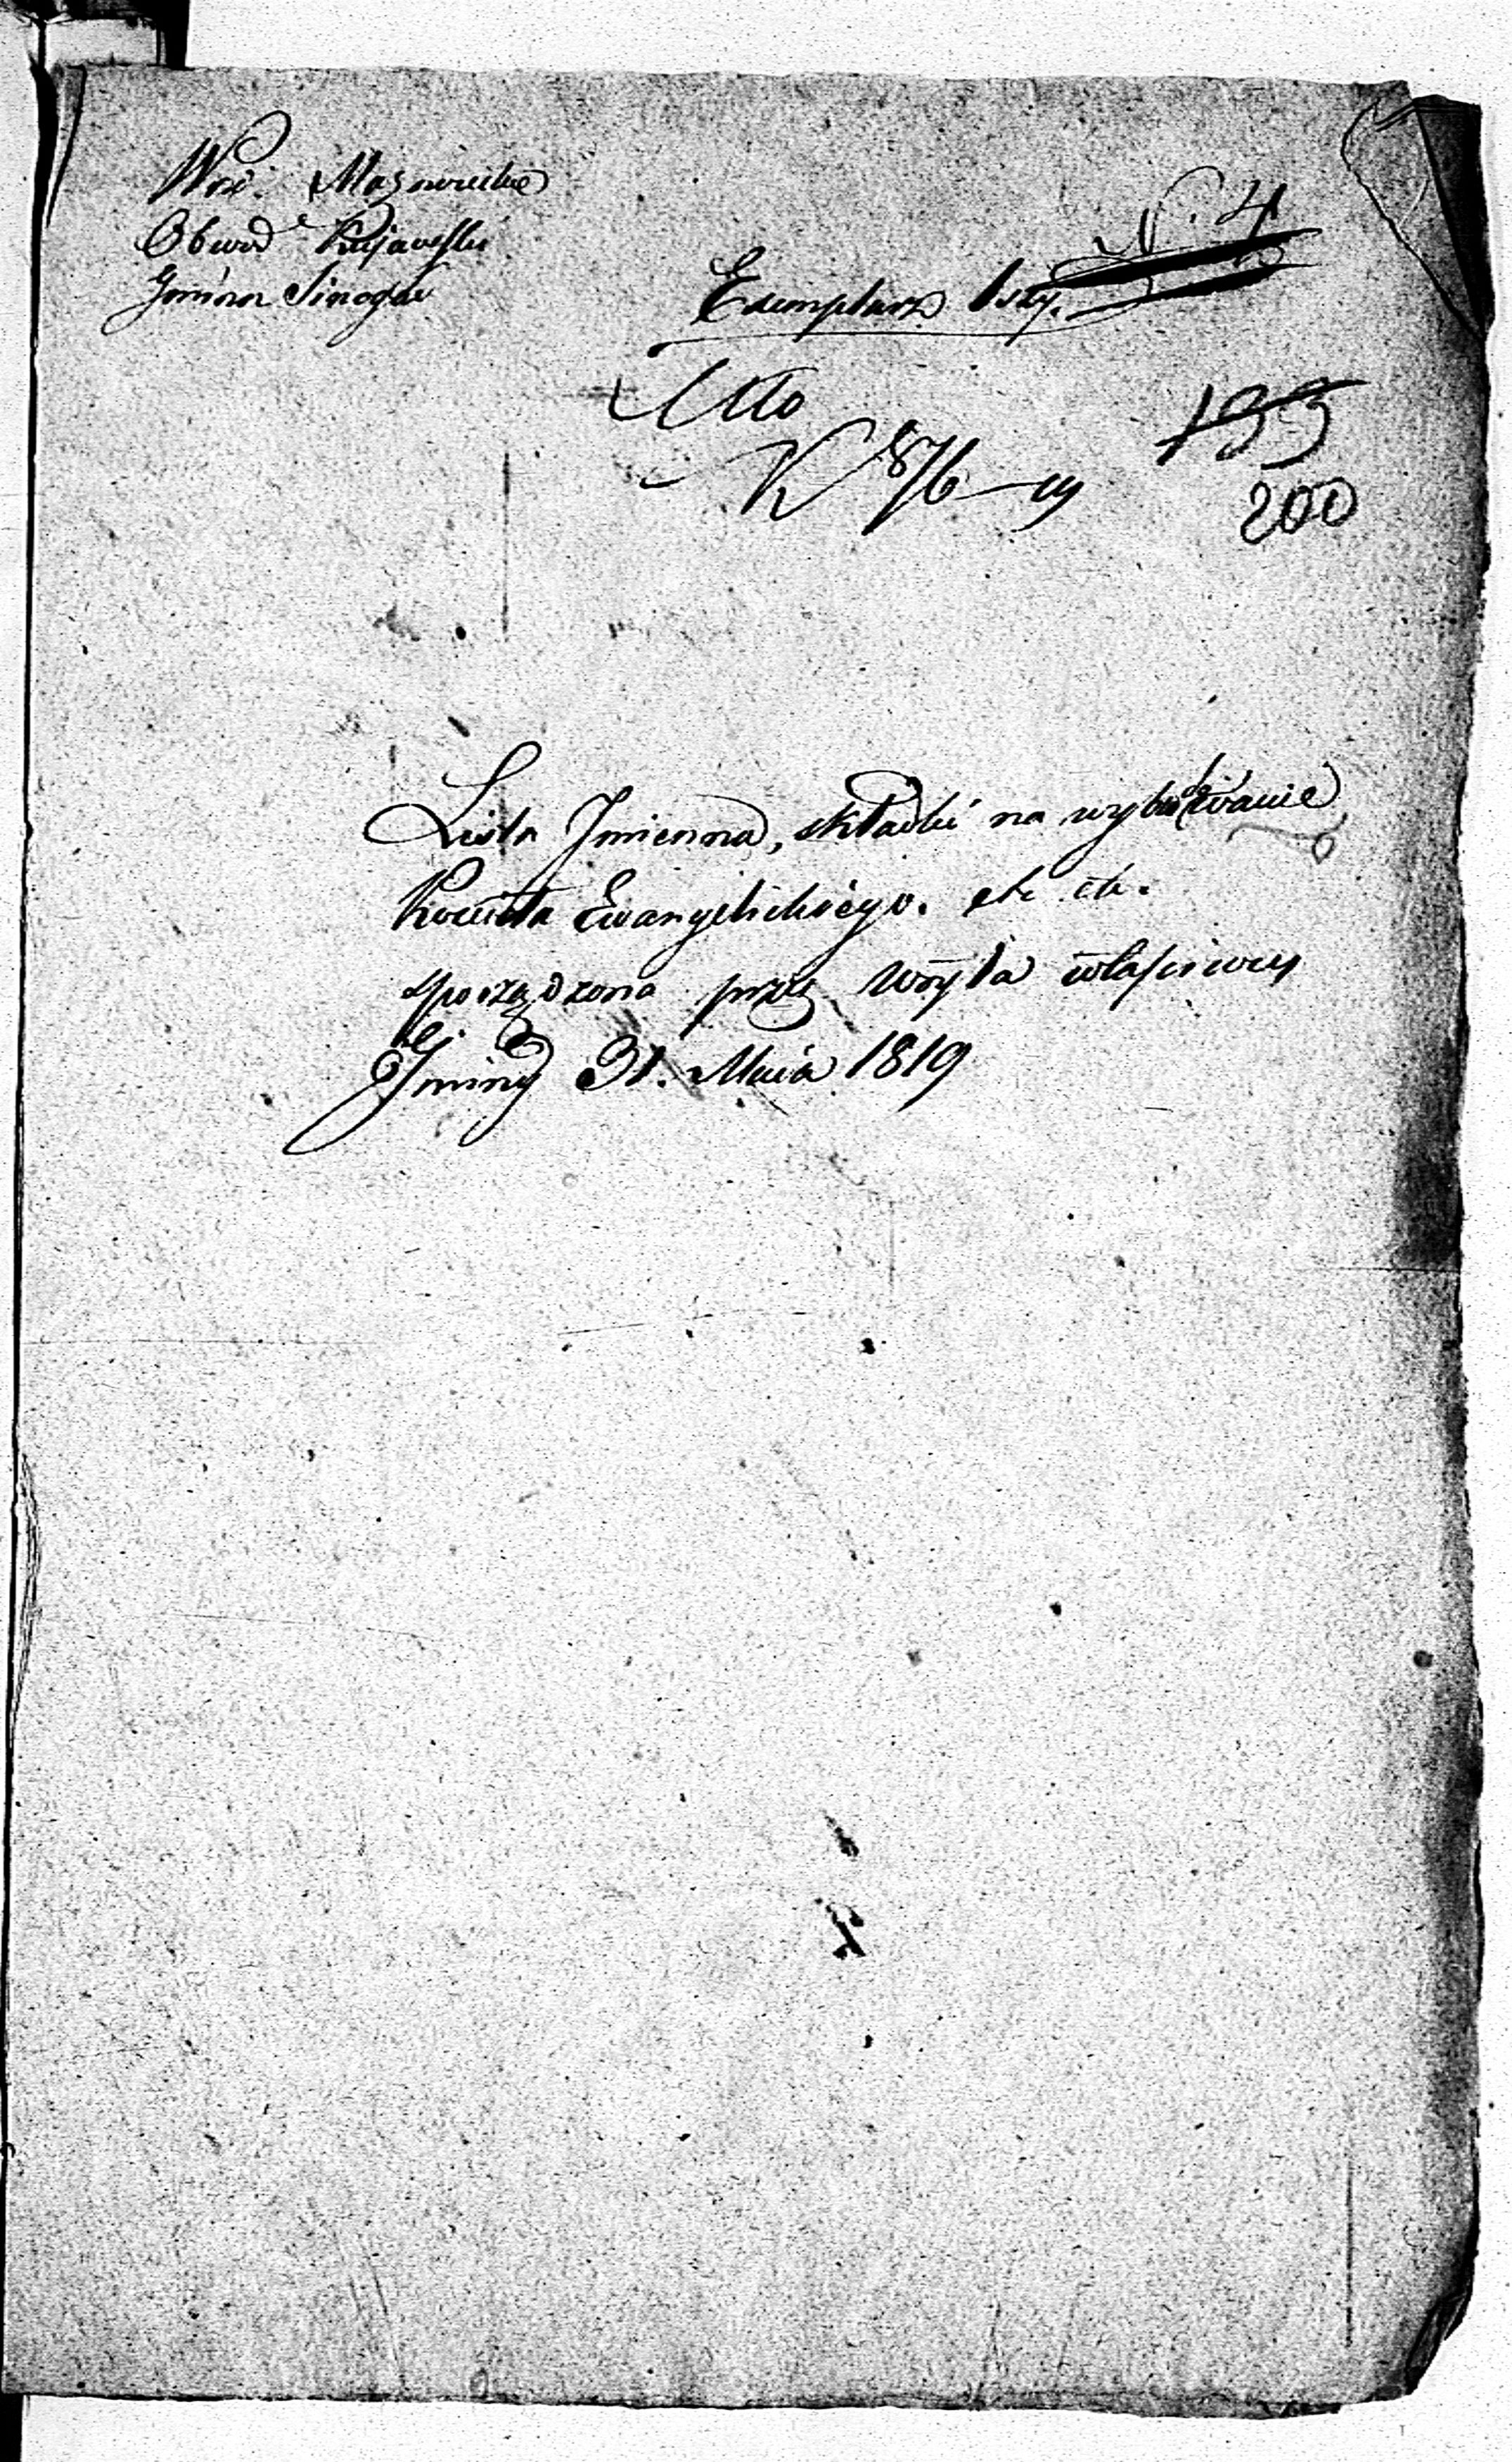 Woi: Mazowieckie
Obwod Kujawski
Gmina Sinogac
N. 4
Exemplarz 1szy.
133
K 8/6 19
200
Lista Jmienna, składki na wybudowanie
Kościoła Ewangelickiego. etc etc.
sporządzona przez Woyta właściwey
Gminy 31. Maia 1819